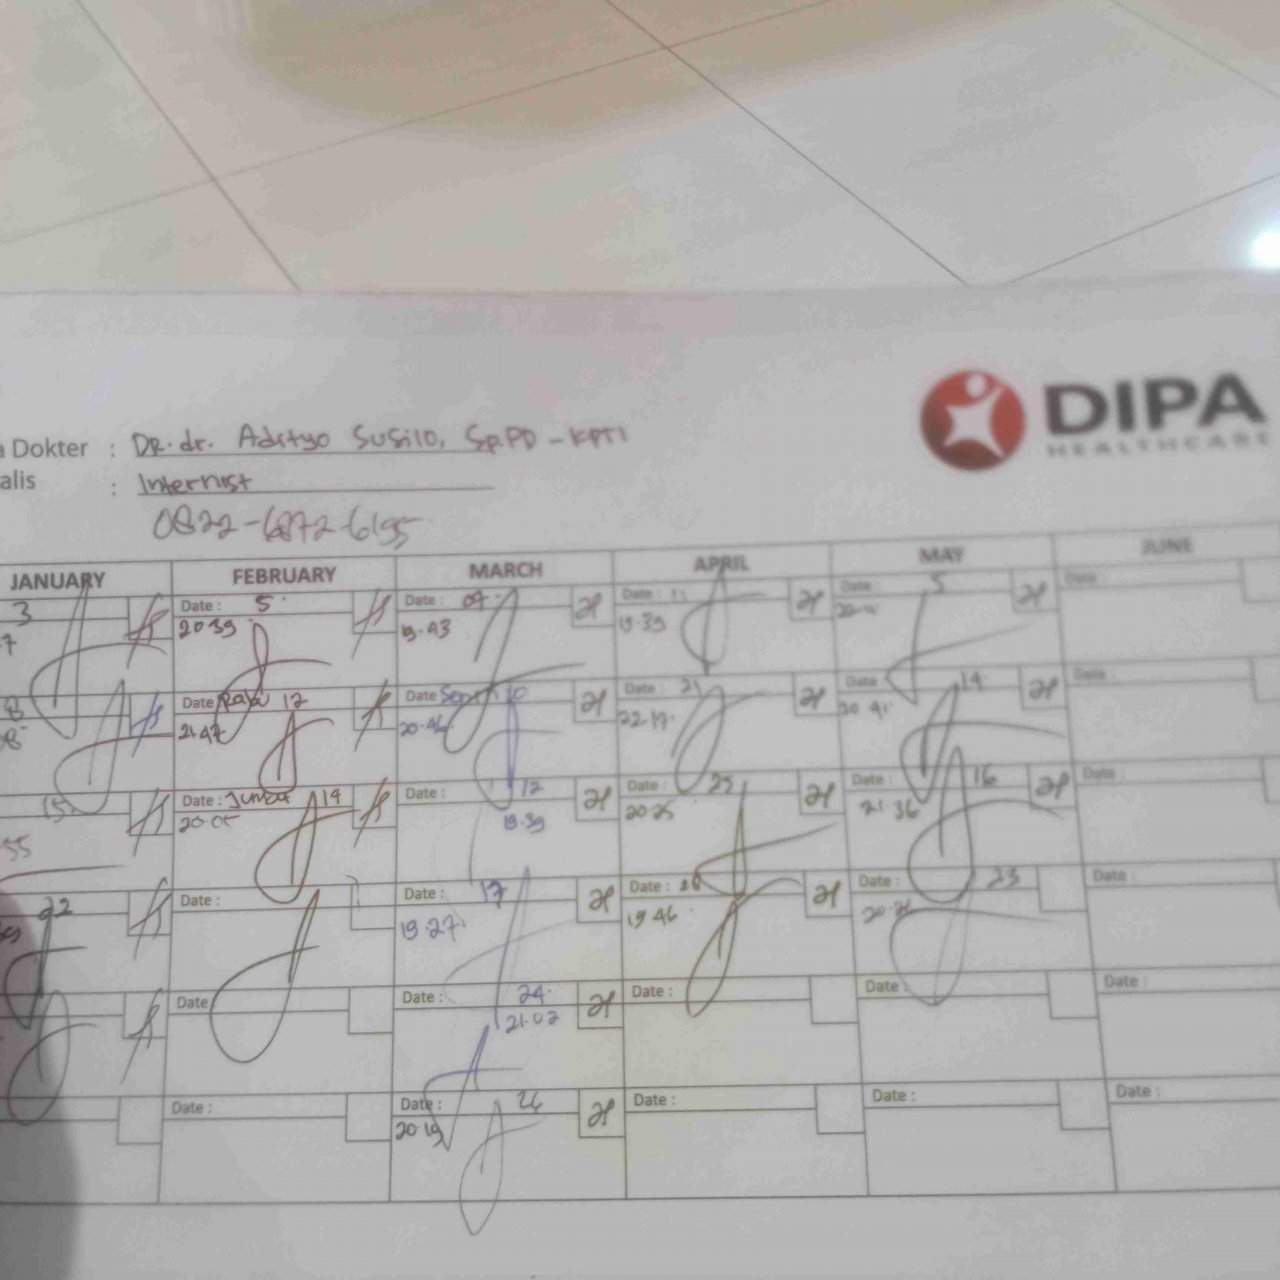 DIPA
HEALTHCARE
a Dokter : DR. dr. Adityo Susilo, SpPD - KPTI
alis : Internist
0822-6872-6195
JANUARY FEBRUARY MARCH APRIL MAY JUNE
3 Date : 5 Date : 09 Date : 11 Date : 5 Date :
20.39 19.43 19.39
8 Date Rabu 12 Date 10 Date : 21 Date : 14 Date :
21.47 20.46 22.17
15 Date : Jumat 14 Date : 12 Date : 23 Date : 16 Date :
55 20.05 19.39 20.25 21.36
22 Date : Date : 17 Date : Date : 23 Date :
19.27 19.46
Date Date : 24 Date : Date : Date :
21.02
Date : Date : 26 Date : Date : Date :
20.19